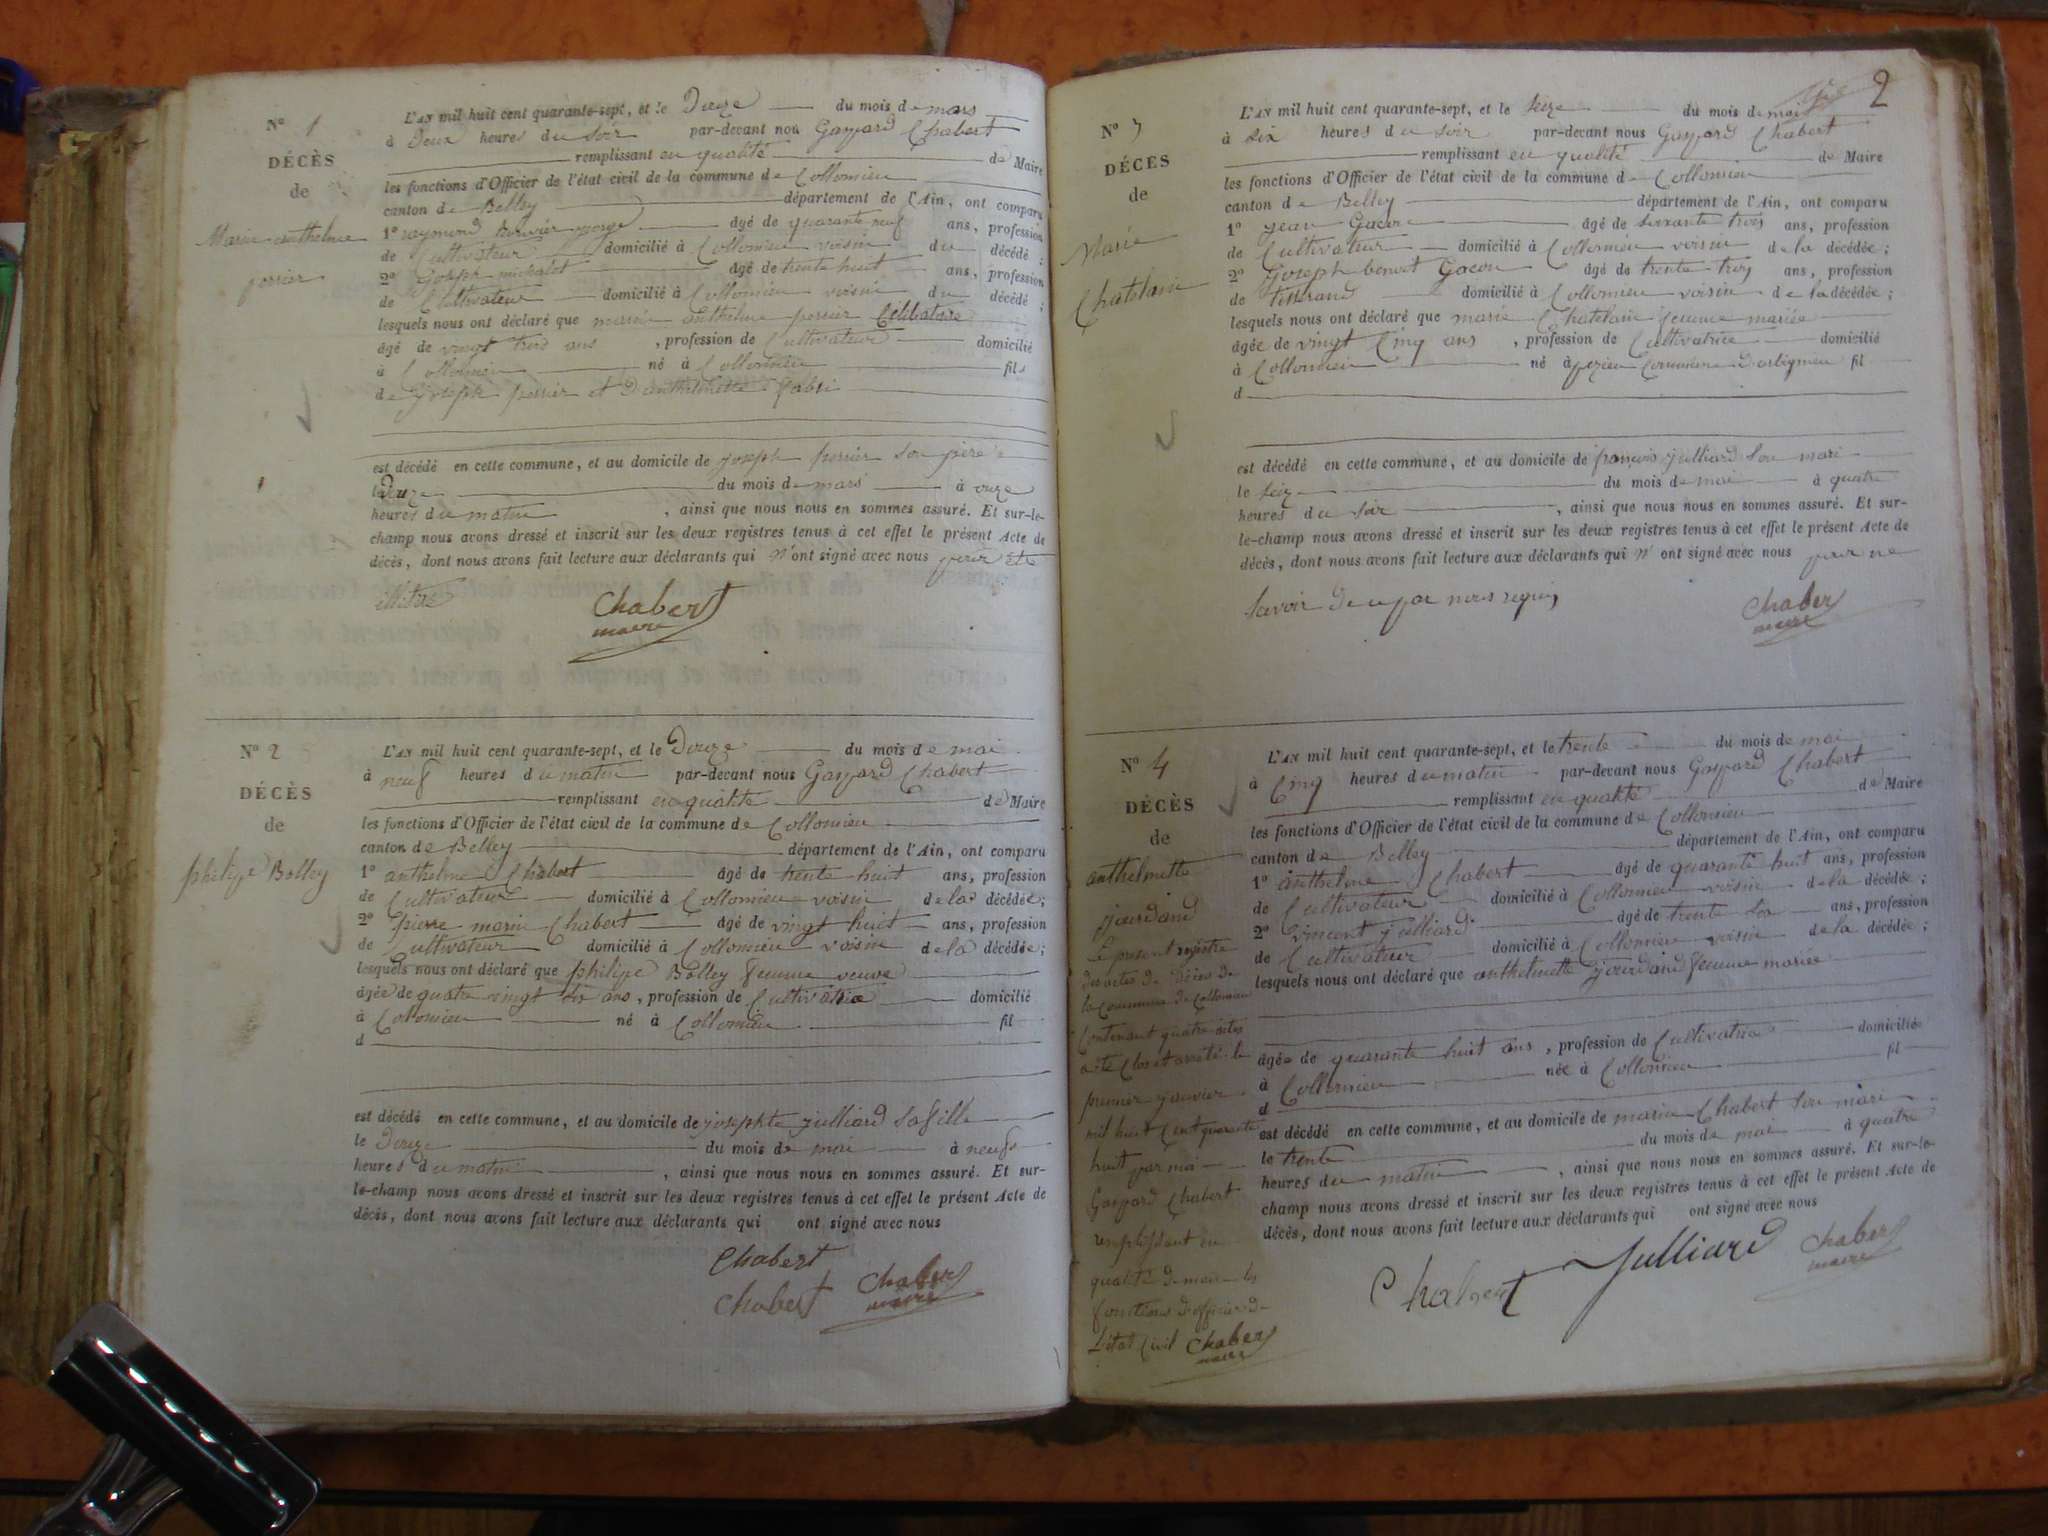 N° 1
DÉCÈS
de
Marie anthelme
perrier
L'AN mil huit cent quarante-sept, et le Douze du mois de mars
à Deux heures du soir par-devant nous Gaspard Chabert
remplissant en qualité de Maire
les fonctions d'Officier de l'état civil de la commune de Collomieu
canton de Belley département de l'Ain, ont comparu
1° raymond âgé de quarante neuf ans, profession
de Cultivateur domicilié à Collomieu voisin du décédé ;
2° Joseph michalet âgé de trente huit ans, profession
de Cultivateur domicilié à Collomieu voisin du décédé ;
lesquels nous ont déclaré que marie anthelme perrier Célibataire
âgé de vingt trois ans , profession de Cultivateur domicilié
à Collomieu né à Collomieu fils
de joseph perrier et D'anthelmette
est décédé en cette commune, et au domicile de joseph perrier son père
le Douze du mois de mars à onze
heures du matin , ainsi que nous nous en sommes assuré. Et sur-le-
champ nous avons dressé et inscrit sur les deux registres tenus à cet effet le présent Acte de
décès, dont nous avons fait lecture aux déclarants qui n'ont signé avec nous pour être
Chabert
maire
N° 2
DÉCÈS
de
philippe Belley
L'AN mil huit cent quarante-sept, et le Douze du mois de mai
à neuf heures du matin par-devant nous Gaspard Chabert
remplissant en qualité de Maire
les fonctions d'Officier de l'état civil de la commune de Collomieu
canton de Belley département de l'Ain, ont comparu
1° anthelme Chabert âgé de trente huit ans, profession
de Cultivateur domicilié à Collomieu voisin de la décédée ;
2° pierre marin Chabert âgé de vingt huit ans, profession
de Cultivateur domicilié à Collomieu voisin de la décédée ;
lesquels nous ont déclaré que philippe Belley femme veuve
âgée de quatre vingt dix ans , profession de Cultivatrice domicilié
à Collomieu né à Collomieu fil
d
est décédé en cette commune, et au domicile de josephte julliard sa fille
le Douze du mois de mai à neuf
heures du matin , ainsi que nous nous en sommes assuré. Et sur-
le-champ nous avons dressé et inscrit sur les deux registres tenus à cet effet le présent Acte de
décès, dont nous avons fait lecture aux déclarants qui ont signé avec nous
Chabert
Chabert Chabert
maire
2
N° 3
DÉCÈS
de
Marie
Chatelain
L'AN mil huit cent quarante-sept, et le seize du mois de mai
à six heures du soir par-devant nous Gaspard Chabert
remplissant en qualité de Maire
les fonctions d'Officier de l'état civil de la commune de Collomieu
canton de Belley département de l'Ain, ont comparu
1° jean Gacon âgé de soixante trois ans, profession
de Cultivateur domicilié à Collomieu voisin de la décédée ;
2° Joseph benoit Gacon âgé de trente trois ans, profession
de tisserand domicilié à Collomieu voisin de la décédée ;
lesquels nous ont déclaré que marie Chatelain femme mariée
âgée de vingt Cinq ans , profession de Cultivatrice domicilié
à Collomieu né à pezieu Commune D'arbignieu fil
d
est décédé en cette commune, et au domicile de françois julliard son mari
le seize du mois de mai à quatre
heures du soir , ainsi que nous nous en sommes assuré. Et sur-
le-champ nous avons dressé et inscrit sur les deux registres tenus à cet effet le présent Acte de
décès, dont nous avons fait lecture aux déclarants qui n'ont signé avec nous pour ne
savoir de ce par nous requis
Chabert
maire
N° 4
DÉCÈS
de
anthelmette
jourdand
L'AN mil huit cent quarante-sept, et le trente du mois de mai
à Cinq heures du matin par-devant nous Gaspard Chabert
remplissant en qualité de Maire
les fonctions d'Officier de l'état civil de la commune de Collomieu
canton de Belley département de l'Ain, ont comparu
1° anthelme Chabert âgé de quarante huit ans, profession
de Cultivateur domicilié à Collomieu voisin de la décédée ;
2° vincent julliard âgé de trente six ans, profession
de Cultivateur domicilié à Collomieu voisin de la décédée ;
lesquels nous ont déclaré que anthelmette jourdand femme mariée
âgée de quarante huit ans , profession de Cultivatrice domicilié
à Collomieu née à Collomieu fil
d
est décédé en cette commune, et au domicile de marin Chabert son mari
le trente du mois de mai à quatre
heures du matin , ainsi que nous nous en sommes assuré. Et sur-le-
champ nous avons dressé et inscrit sur les deux registres tenus à cet effet le présent Acte de
décès, dont nous avons fait lecture aux déclarants qui ont signé avec nous
Chabert Julliard Chabert
maire
Le présent registre
des actes de Décès de
la Commune de Collomieu
Contenant quatre actes
a été Clos et arrêté le
premier janvier
mil huit Cent quarante
huit par moi
Gaspard Chabert
remplissant en
qualité de maire les
fonctions d'officier de
L'état Civil Chabert
maire